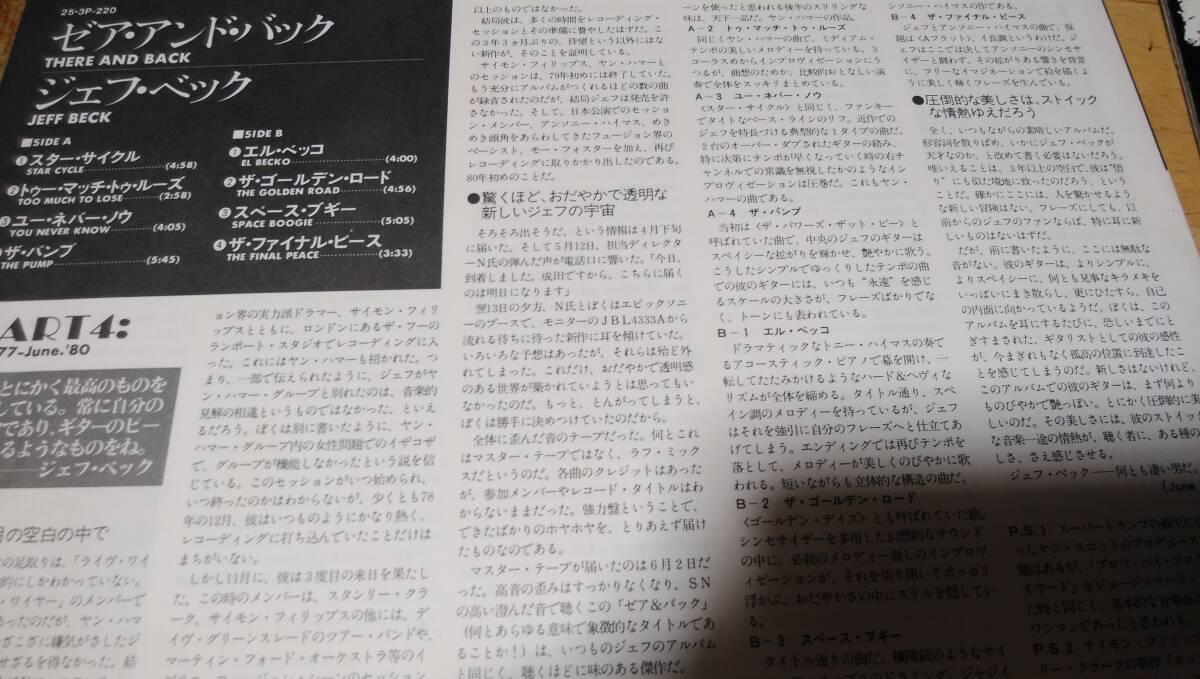 25・3P-220
ゼア・アンド・バック
THERE AND BACK
ジェフ・ベック
JEFF BECK
■SIDE A
❶スター・サイクル
STAR CYCLE (4:58)
❷トゥー・マッチ・トゥ・ルーズ
TOO MUCH TO LOSE (2:58)
❸ユー・ネバー・ノウ
YOU NEVER KNOW (4:05)
ザ・パンプ
THE PUMP (5:45)
■SIDE B
❶エル・ベッコ
EL BECKO (4:00)
❷ザ・ゴールデン・ロード
THE GOLDEN ROAD (4:56)
❸スペース・ブギー
SPACE BOOGIE (5:05)
❹ザ・ファイナル・ピース
THE FINAL PEACE (3:33)
ART4:
77-June.'80
とにかく最高のものを
している。常に自分の
であり、ギターのビー
るようなものをね。
ジェフ・ベック
月の空白の中で
の足取りは、「ライヴ・ワイ
的にしかわかっていない。
・ワイヤー」のメンバーで
あったのだが、ヤン・ハマ
ざこざに嫌気がさしたジ
せざるを得なかった。結
ョン界の実力派ドラマー、サイモン・フィリ
ップスとともに、ロンドンにあるザ・フーの
ランポート・スタジオでレコーディングに入
った。これにはヤン・ハマーも招かれた。つ
まり、一部で伝えられたように、ジェフがヤ
ン・ハマー・グループと別れたのは、音楽的
見解の相違というものではなかった、といえ
るだろう。ぼくは別に書いたように、ヤン・
ハマー・グループ内の女性問題でのイザコザ
で、グループが機能しなかったという説を信
じている。このセッションがいつ始められ、
いつ終ったのかはわからないが、少くとも78
年の12月、彼はいつものようにかなり熱く、
レコーディングに打ち込んでいたことだけは
まちがいない。
しかし11月に、彼は3度目の来日を果たし
た。この時のメンバーは、スタンリー・クラ
ーク、サイモン・フィリップスの他には、デ
イヴ・グリーンスレードのツアー・バンドや、
マーティン・フォード・オーケストラ等のイ
以上のものではなかった。
結局彼は、多くの時間をレコーディング・
セッションとその準備に費やしたはずだ。こ
の3年3ヵ月ぶりの、待望という以外にはな
い新作が、そのことを証明している。
サイモン・フィリップス、ヤン・ハマーと
のセッションは、79年初めには終了していた。
もう充分にアルバムがつくれるほどの数の曲
が録音されたのだが、結局ジェフは発売を許
さなかった。そして、日本公演でのセッショ
ン・メンバー、アンソニー・ハイマス、めき
めき頭角をあらわしてきたフュージョン界の
ベーシスト、モー・フォスターを加え、再び
レコーディングに取りかかり出したのである。
80年初めのことだ。
●驚くほど、おだやかで透明な
新しいジェフの宇宙
そろそろ出そうだ。という情報は4月下旬
に届いた。そして5月12日、担当ディレクタ
ーN氏の弾んだ声が電話口に響いた。「今日、
到着しました。成田ですから、こちらに届く
のは明日になります」
翌13日の夕方、N氏とぼくはエピックソニ
ーのブースで、モニターのJBL4333Aから
流れる待ちに待った新作に耳を傾けていた。
いろいろな予想はあったが、それらは殆ど外
れてしまった。これだけ、おだやかで透明感
のある世界が築かれていようとは思ってもい
なかったのだ。もっと、とんがってしまうと、
ぼくは勝手に決めつけていたのだから。
全体に歪んだ音のテープだった。何とこれ
はマスター・テープではなく、ラフ・ミック
スだというのだ。各曲のクレジットはあった
が、参加メンバーやレコード・タイトルはわ
からないままだった。強力盤ということで、
できたばかりのホヤホヤを、とりあえず届け
たものなのである。
マスター・テープが届いたのは6月2日だ
った。高音の歪みはすっかりなくなり、SN
の高い澄んだ音で聴くこの「ゼア&バック」
(何とあらゆる意味で象徴的なタイトルであ
ることか!)は、いつものジェフのアルバム
と同じく、聴くほどに味のある傑作だ。
ーンを使ったと思われる後半のスリリングな
味は、天下一品だ。ヤン・ハマーの作品。
A-2 トゥ・マッチ・トゥ・ルーズ
同じくヤン・ハマーの曲で、ミディアム・
テンポの美しいメロディーを持っている。3
コーラスめからインプロヴィゼーションにう
つるが、曲想のためか、比較的おとなしい演
奏で全体をスッキリまとめている。
A-3 ユー・ネバー・ノウ
〈スター・サイクル〉と同じく、ファンキー
でタイトなベース・ラインのリフ。近作での
ジェフを特長づける典型的な1タイプの曲だ。
2台のオーバー・ダブされたギターの絡み、
特に次第にテンポが早くなっていく時の右チ
ャンネルでの常識を無視したかのようなイン
プロヴィゼーションは圧巻だ。これもヤン・
ハマーの曲である。
A-4 ザ・パンプ
当初は〈ザ・パワーズ・ザット・ビー〉と
呼ばれていた曲で、中央のジェフのギターは
スペイシーな拡がりを輝かせ、艶やかに歌う。
こうしたシンプルでゆっくりしたテンポの曲
での彼のギターには、いつも“永遠”を感じ
るスケールの大きさが、フレーズばかりでな
く、トーンにも表われている。
B-1 エル・ベッコ
ドラマティックなトニー・ハイマスの奏で
るアコースティック・ピアノで幕を開け、一
転してたたみかけるようなハード&ヘヴィな
リズムが全体を締める。タイトル通り、スペ
イン調のメロディーを持っているが、ジェフ
はそれを強引に自分のフレーズへと仕立てあ
げてしまう。エンディングでは再びテンポを
落として、メロディーが美しくのびやかに歌
われる。短いながらも立体的な構造の曲だ。
B-2 ザ・ゴールデン・ロード
〈ゴールデン・デイズ〉とも呼ばれていた曲。
シンセサイザーを多用した幻想的なサウンド
の中に、必殺のメロディー崩しのインプロヴ
ィゼーションが、それを切り開いてポッカリ
浮かぶ。おだやかさの中にスリルを隠してい
る。
B-3 スペース・ブギー
タイトル通りの曲だ。機関銃のようなサイ
ンソニー・ハイマスの作である。
B-4 ザ・ファイナル・ピース
ジェフとアンソニー・ハイマスの曲で、仮
題は〈Aフラット〉、イ長調というわけだ。ジ
ェフはここでは決してアンソニーのシンセサ
イザーと闘わず、その拡がりある響きを背景
に、フリーなイマジネーションで絵を描くよ
うに美しく輝くフレーズを生んでいる。
●圧倒的な美しさは、ストイック
な情熱ゆえだろう
全く、いつもながらの素晴しいアルバムだ。
形容詞を散りばめ、いかにジェフ・ベックが
天才なのか、と改めて書く必要はないだろう。
唯いえることは、3年以上の空白で、彼は“悟
り”にも似た境地に致ったのだろう、という
ことだ。確かにここには、人を驚かせるよう
な新しい冒険はない。フレーズにしても、以
前からのジェフのファンならば、特に耳に新
しいものはないはずだ。
だが、前に書いたように、ここには無駄な
音がない。彼のギターは、よりシンプルに、
よりスペイシーに、何とも見事なキラメキを
いっぱいにまき散らし、更にひたすら、自己
の内面に向かっているようだ。ぼくは、この
アルバムを耳にするたびに、恐しいまでにと
ぎすまされた、ギタリストとしての彼の感性
が、今まぎれもなく孤高の位置に到達したこ
とを感じてしまうのだ。新しさはないけれど、
このアルバムでの彼のギターは、まず何より
ものびやかで艶っぽい。とにかく圧倒的に美
しいのだ。その美しさには、彼のストイック
な音楽一途の情熱が、聴く者に、ある種の
しさ、さえ感じさせる。
ジェフ・ベック――何とも凄い男だ。
(June
P.S.1 スーパートランプの蘇生に
ったケン・スコットのプロデュース
題はあるが、「ブロウ・バイ・ブロウ
イヤード」をジョージ・マーティ
た時と同じく、基本的な音楽面
ワンマンであったと思われる。
P.S.2 サイモン・フィリ
リー・クラークの新作「ロッ